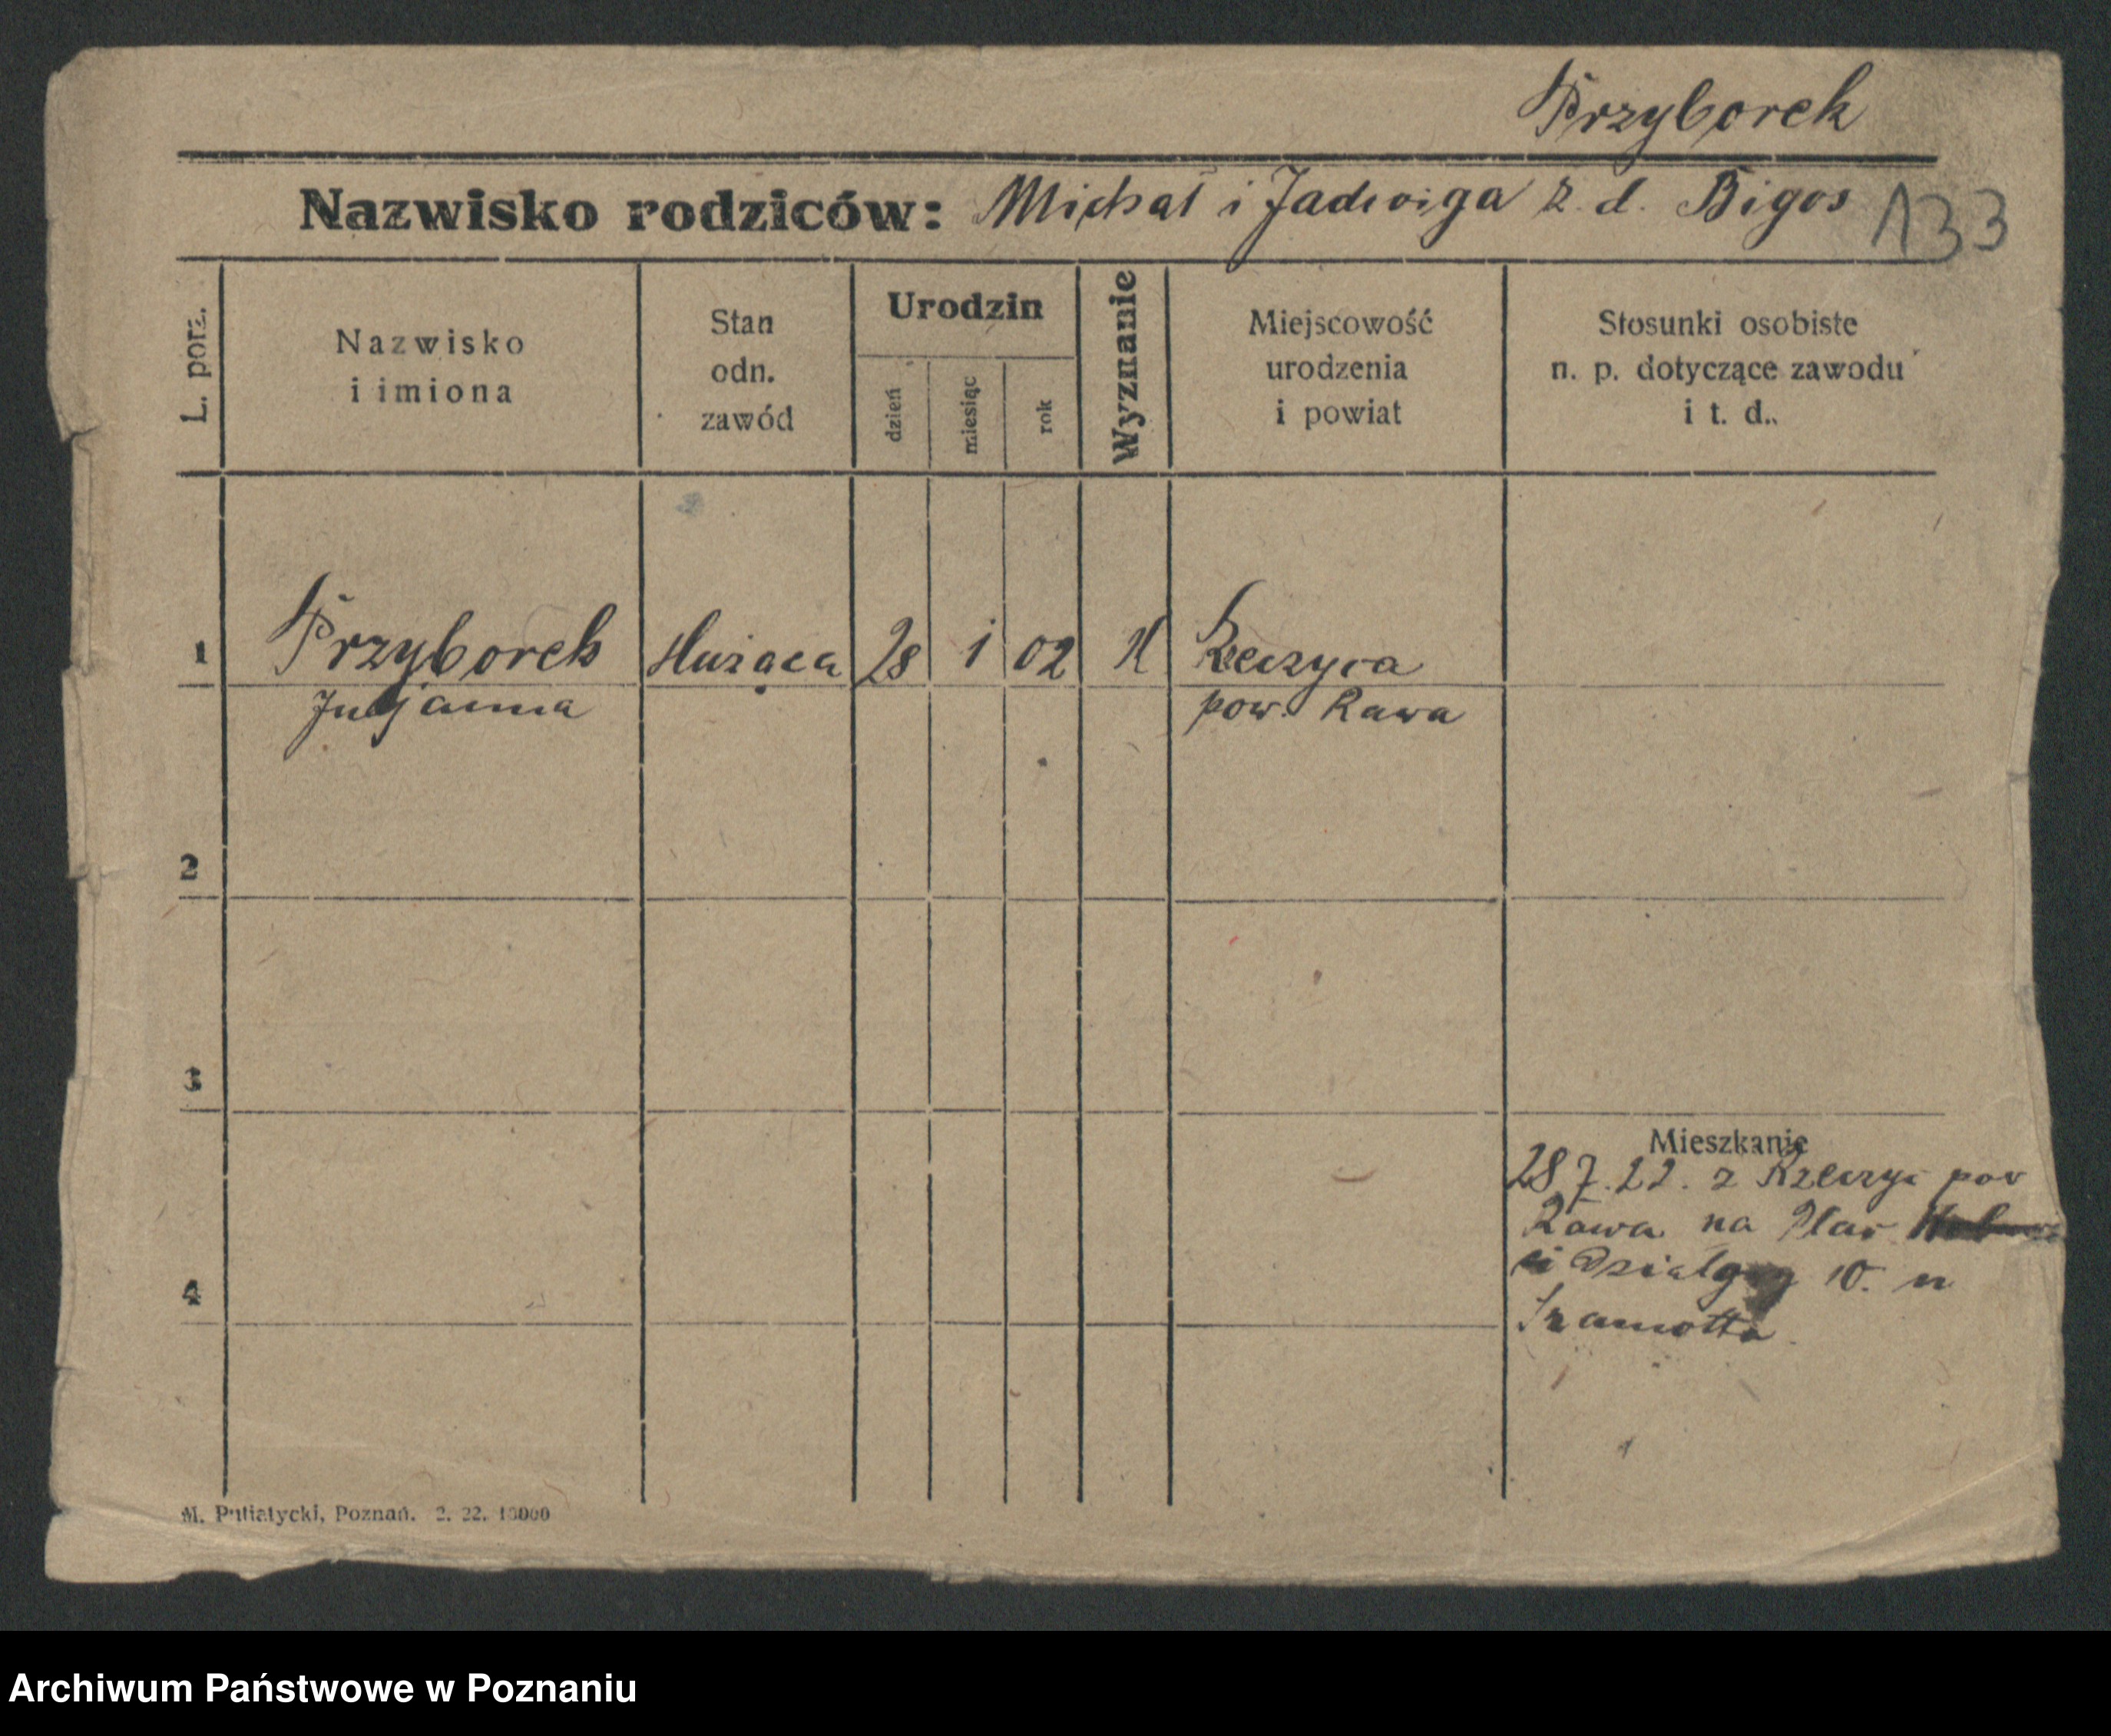 Przyborek
Nazwisko rodziców: Michał i Jadwiga z. d. Bigos 133
L. porz.
Nazwisko
i imiona
Stan
odn.
zawód
Urodzin
dzień
miesiąc
rok
Wyznanie
Miejscowość
urodzenia
i powiat
Stosunki osobiste
n. p. dotyczące zawodu
i t. d..
1 Przyborek służąca 28 1 02 K Rzeczyca
Juljanna pow. Rawa
2
3
Mieszkanie
28 7. 22. z Rzeczyc pow
Rawa na Plac
10. u
4
Szamotta
M. Putiatycki, Poznań. 2. 22. 10000
Archiwum Państwowe w Poznaniu